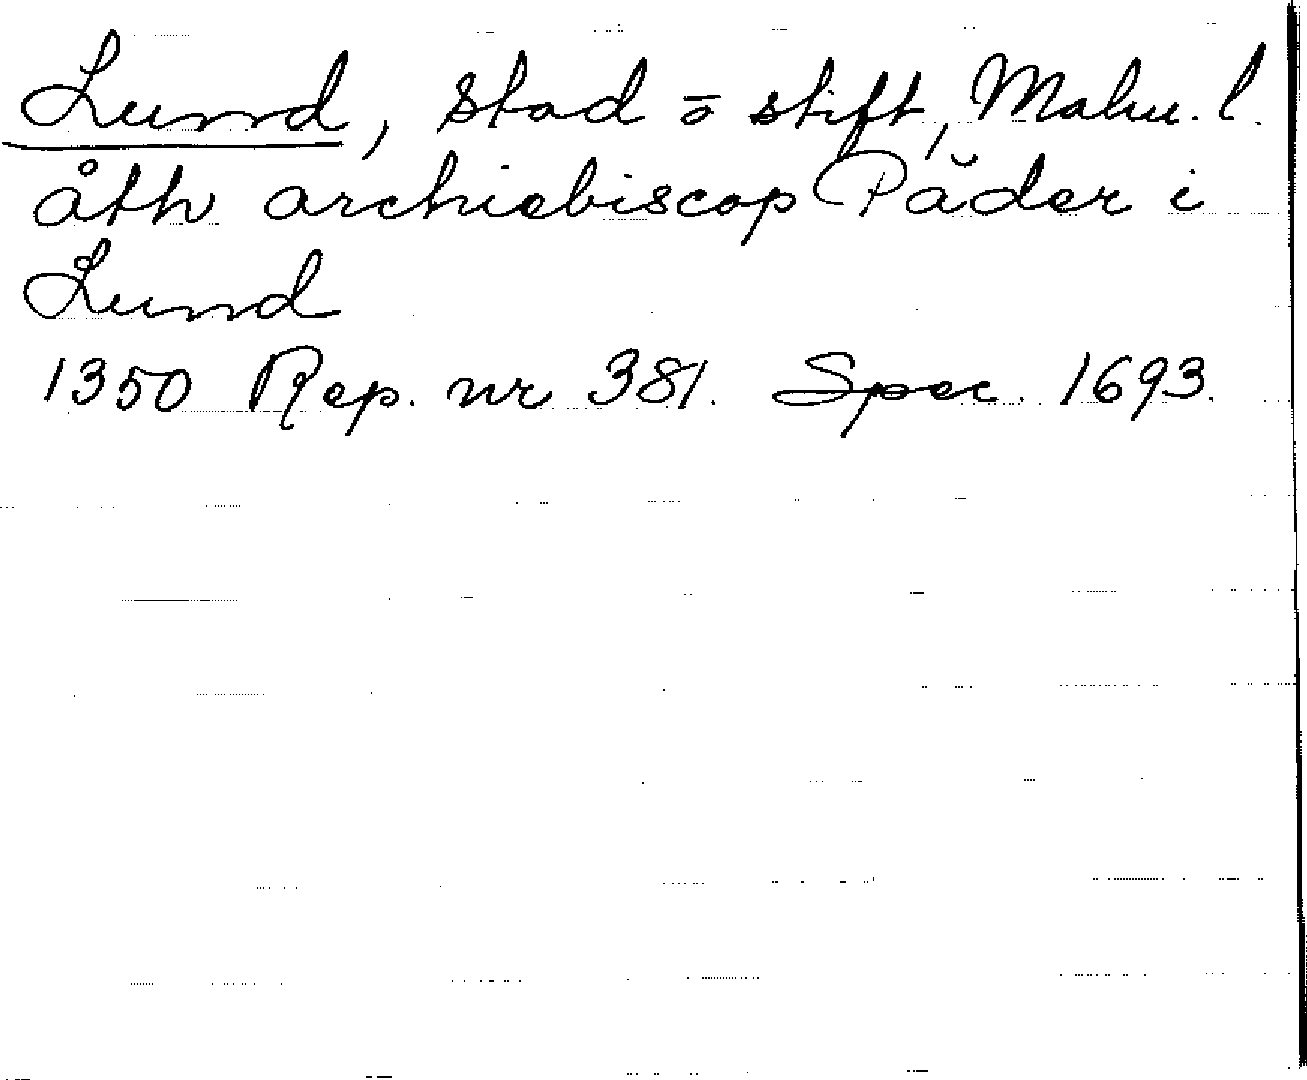 Lund, stad o stift, Malm. l.
åth archiebiscop Päder i
Lund
1350 Rep. nr 381. Spec. 1693.